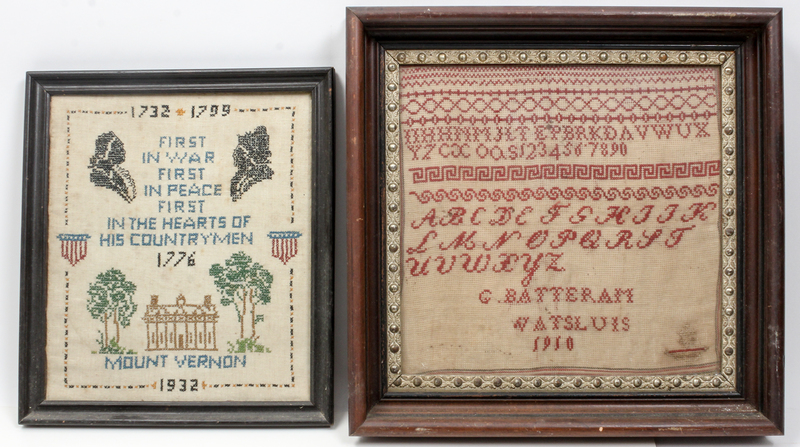 1732 1799
FIRST
IN WAR
FIRST
IN PEACE
FIRST
IN THE HEARTS OF
HIS COUNTRYMEN
1776
MOUNT VERNON
1932
1234567890
ABCDEFGHIJK
LMNOPQRST
UVWXYZ
G. BATTERAM
WATSLUIS
1910